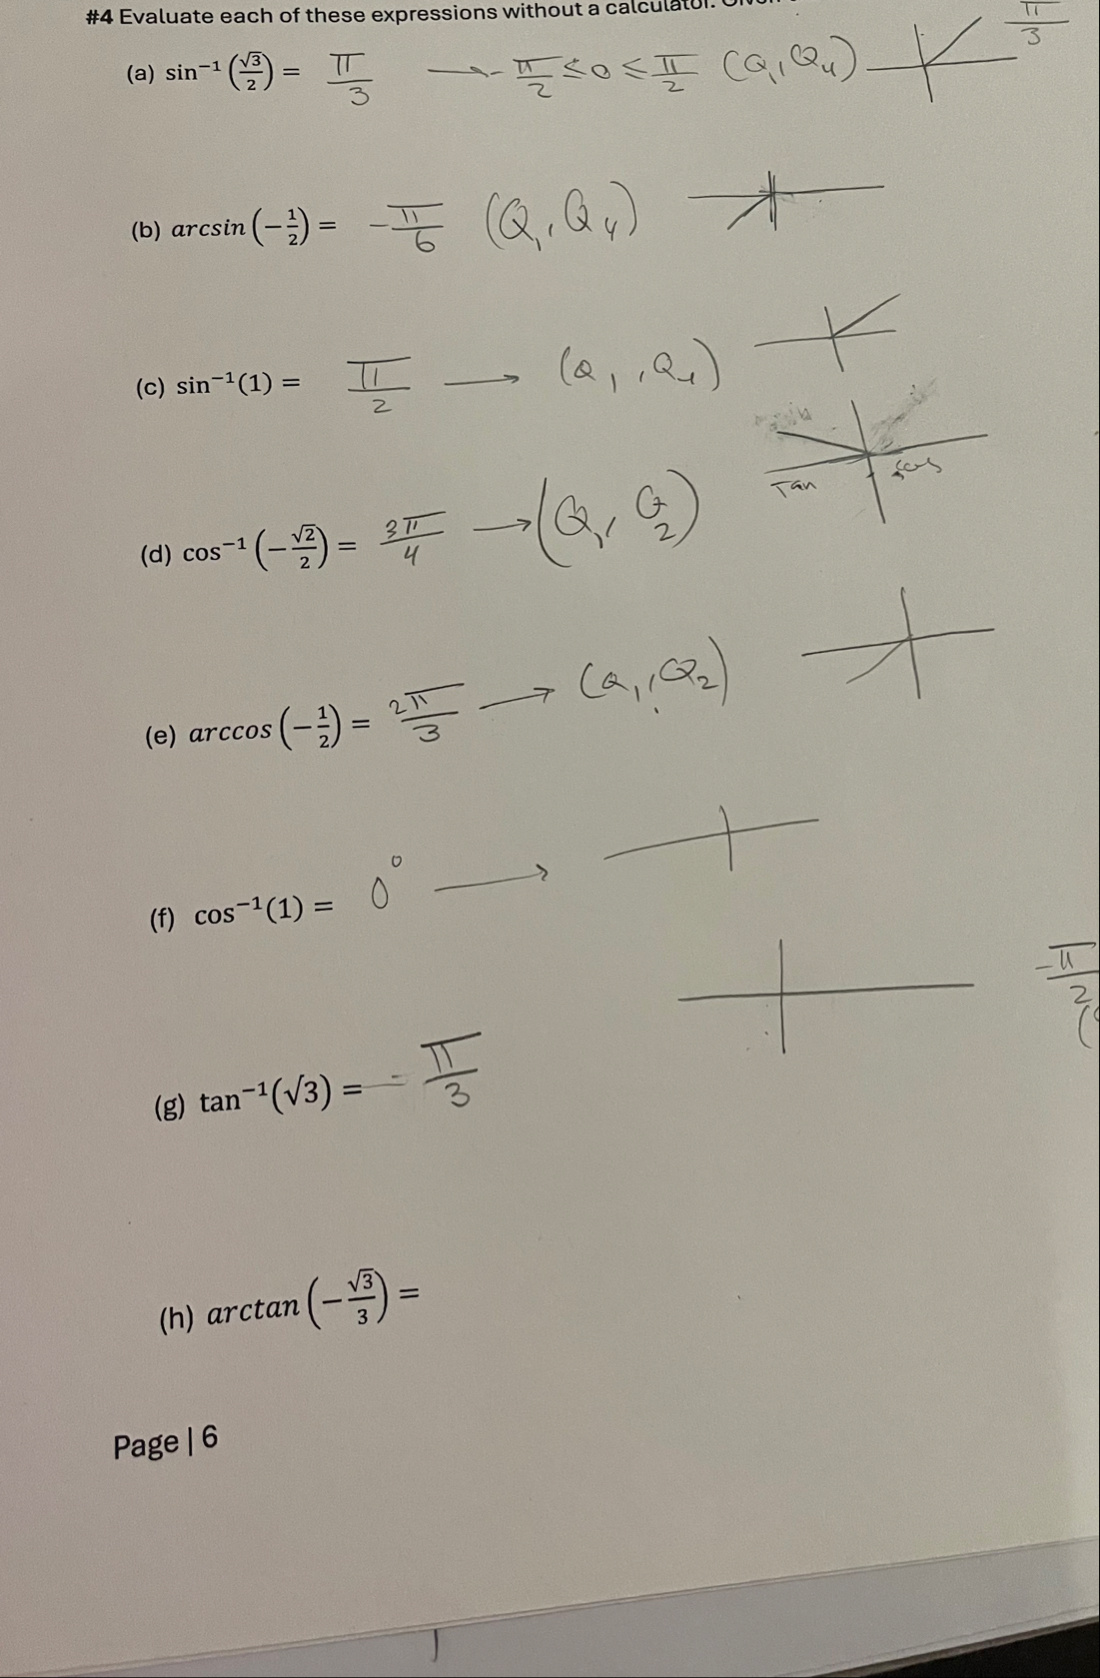 #4 Evaluate each of these expressions without a calculator.
π/3
(a) sin⁻¹(√3/2) = π/3 → -π/2 ≤ θ ≤ π/2 (Q₁, Q₄)
(b) arcsin(−1/2) = -π/6 (Q₁, Q₄)
(c) sin⁻¹(1) = π/2 → (Q₁, Q₄)
Tan
(d) cos⁻¹(−√2/2) = 3π/4 → (Q₁, Q₂)
(e) arccos(−1/2) = 2π/3 → (Q₁, Q₂)
(f) cos⁻¹(1) = 0° →
-π/2
(g) tan⁻¹(√3) = π/3
(h) arctan(−√3/3) =
Page | 6